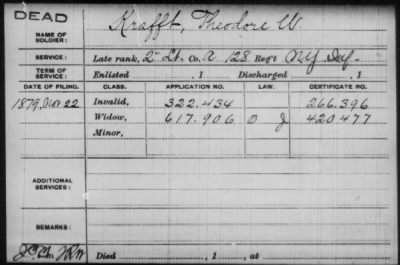 DEAD
NAME OF SOLDIER: Krafft, Theodore W.
SERVICE: Late rank, 2" Lt. Co. A 128 Reg't N.Y. Inf.
TERM OF SERVICE: Enlisted , 1 Discharged , 1
DATE OF FILING. CLASS. APPLICATION NO. LAW. CERTIFICATE NO.
1879, Nov 22 Invalid, 322.434 266.396
Widow, 617.906 420477
Minor,
ADDITIONAL SERVICES:
REMARKS:
Died , 1 , at